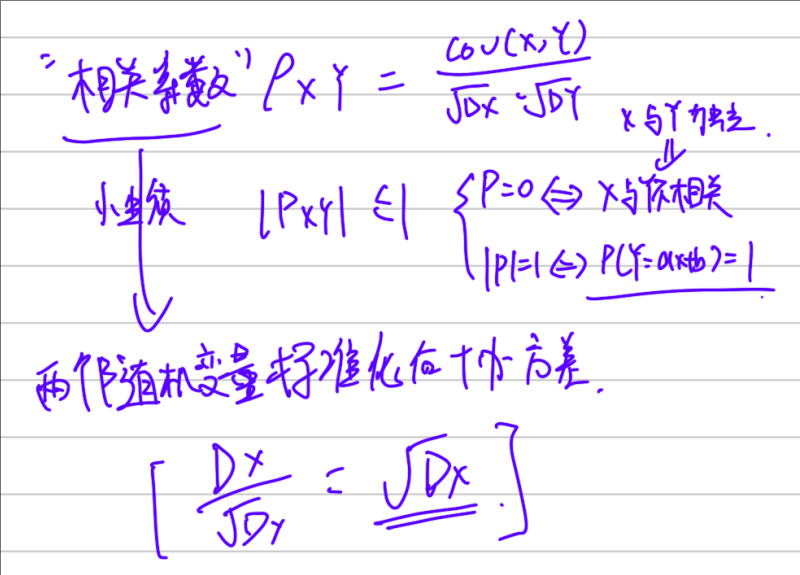 "相关系数" ρXY = cov(X,Y) / √DX · √DY
X与Y独立.
⇓
|ρXY| ≤ 1 { ρ=0 ⇔ X与Y不相关
|ρ|=1 ⇔ P(Y=aX+b)=1
两个随机变量标准化后协方差.
[ DX / √DY = √DX ]